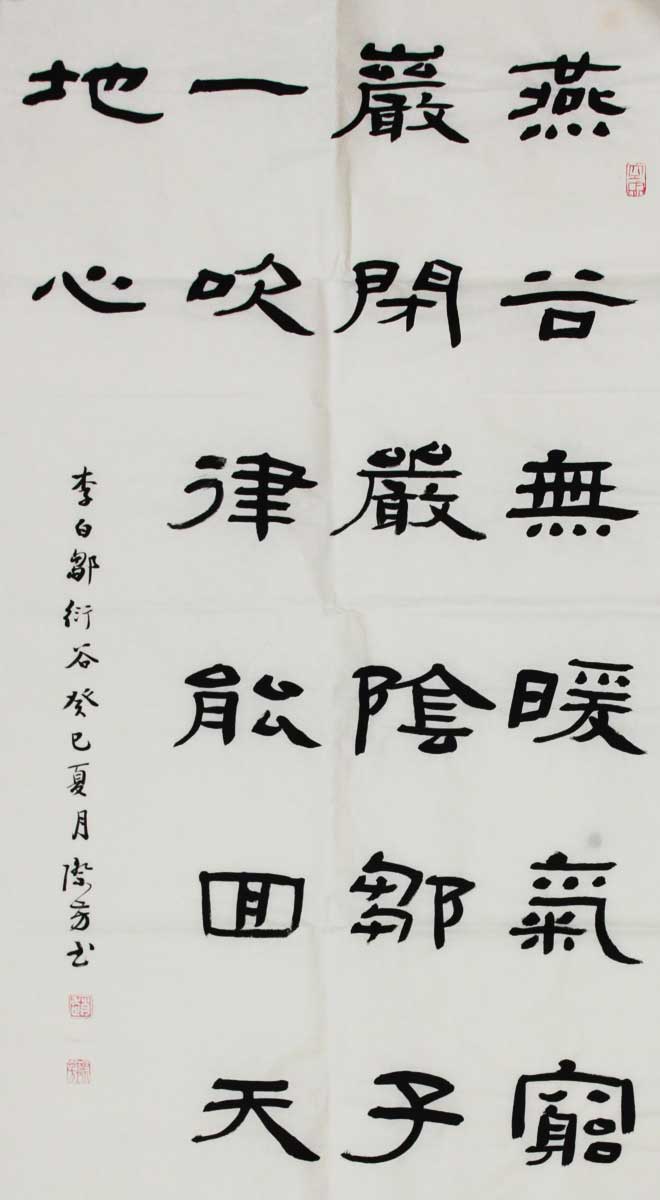 燕谷無暖氣窮
巖閉嚴陰鄒子
一吹律能回天
地心
李白鄒衍谷癸巳夏月際方书